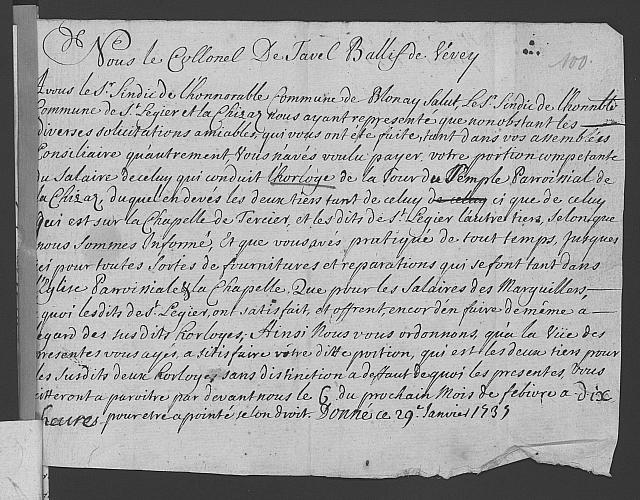 100.
Nous le Collonel De Tavel Ballif de Vévey
A vous le Sr. Sindic de l'honnorable Commune de Blonay Salut, Le Sr. Sindic de l'honnble
Commune de St. Legier et la Chizaz, Nous ayant representé que nonobstant les
diverses solicitations amiables qui vous ont eté faite, tant dans vos assemblées
Consiliaire qu'autrement Vous n'avés voulu payer, votre portion competante
du Salaire de celuy qui conduit l'horloge de la Tour du Temple Parroissial de
la Chizaz, duquel en devés les deux tiers tant de celuy de celuy ci que de celuy
qui est sur la Chapelle de Tercier, et les dits de St. Legier l'autre tiers, selon que
nous sommes Informé, Et que vous avés pratiqué de tout temps, Jusques
ici pour toutes Sortes de fournitures et reparations qui se font tant dans
l'Eglise Parroissiale & la Chapelle. Que pour les Salaires des Marguillers,
quoi les dits de St. Legier, ont satisfait, et offrent encor d'en faire de même a
egard des susdits horloges, Ainsi Nous vous ordonnons, qu'a la Vüe des
presentes vous ayes, a satisfaire votre ditte portion, qui est les deux tiers pour
les Susdits deux horloges, sans distinction a deffaut de quoi les presentes, Vous
citeront a paroitre par devant nous le 6 du prochain Mois de febivre a dix
heures pour etre apointé selon droit. Donné ce 29e. Janvier 1737